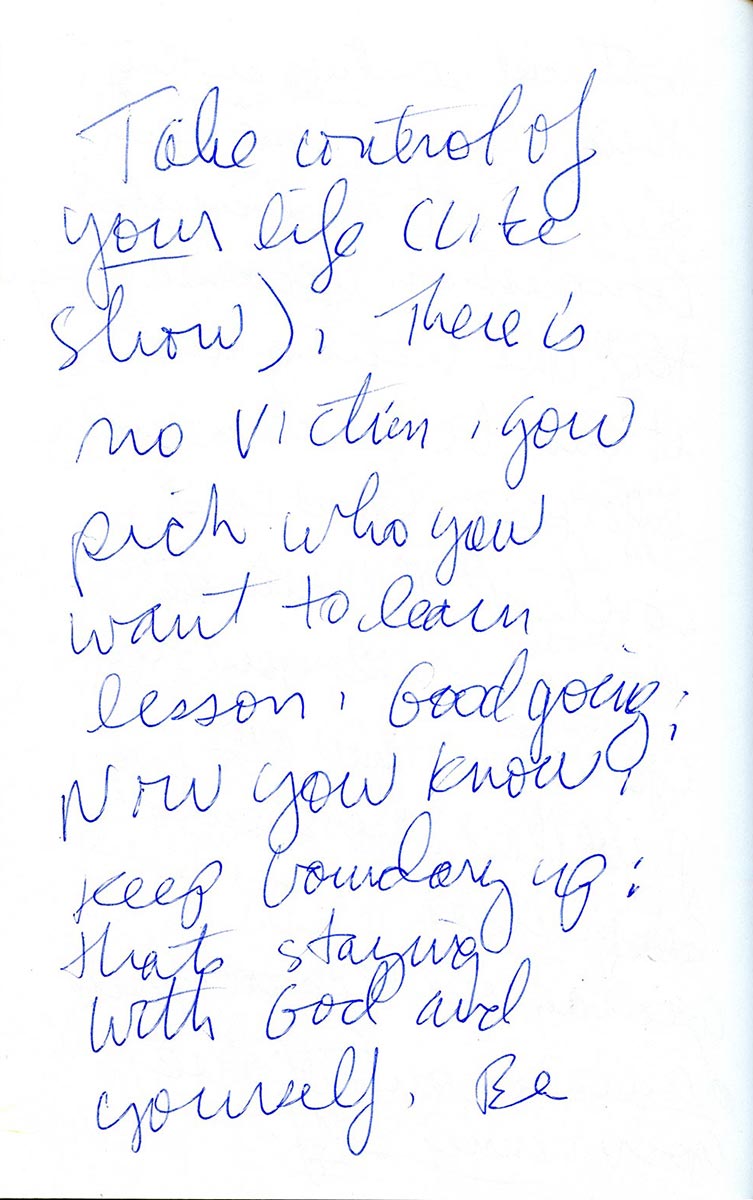 Take control of
your life (like
show), There is
no victim, you
pick who you
want to learn
lesson, Good going;
Now you know,
keep boundary up;
thats staying
with God and
yourself. Be